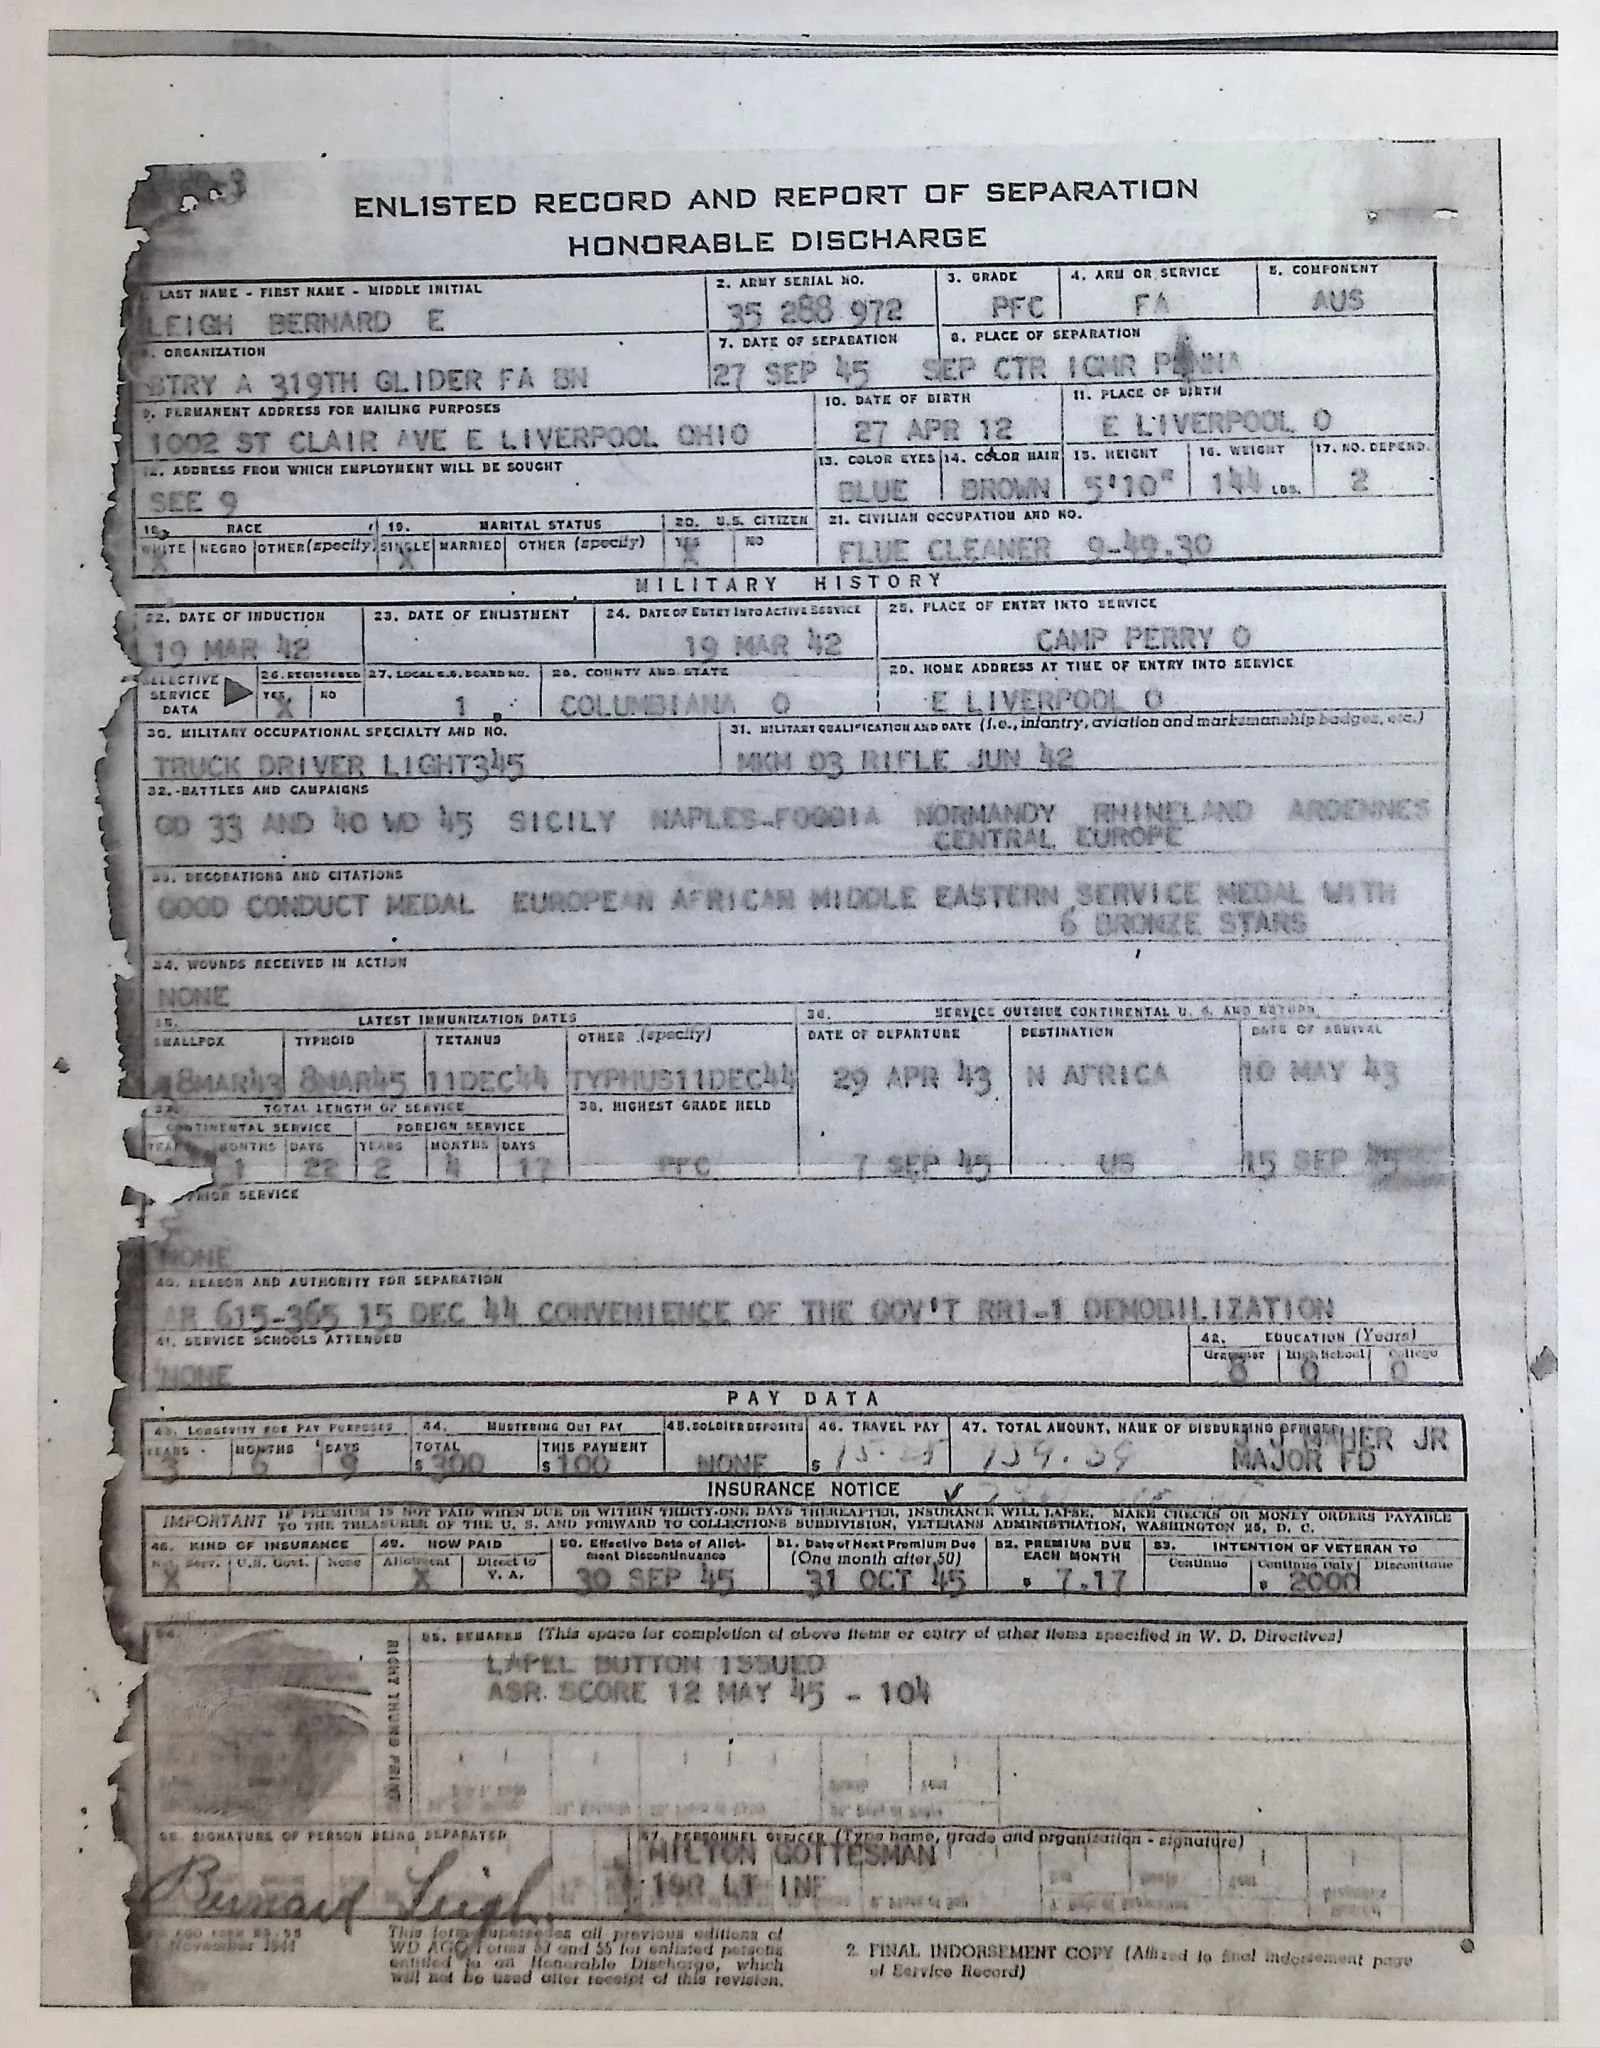 ENLISTED RECORD AND REPORT OF SEPARATION
HONORABLE DISCHARGE
LAST NAME - FIRST NAME - MIDDLE INITIAL
LEIGH BERNARD E
2. ARMY SERIAL NO.
35 288 972
3. GRADE
PFC
4. ARM OR SERVICE
FA
5. COMPONENT
AUS
ORGANIZATION
BTRY A 319TH GLIDER FA BN
7. DATE OF SEPARATION
27 SEP 45
8. PLACE OF SEPARATION
SEP CTR IGMR PENNA
9. PERMANENT ADDRESS FOR MAILING PURPOSES
1002 ST CLAIR AVE E LIVERPOOL OHIO
10. DATE OF BIRTH
27 APR 12
11. PLACE OF BIRTH
E LIVERPOOL O
12. ADDRESS FROM WHICH EMPLOYMENT WILL BE SOUGHT
SEE 9
13. COLOR EYES
BLUE
14. COLOR HAIR
BROWN
15. HEIGHT
5'10"
16. WEIGHT
144 LBS.
17. NO. DEPEND.
2
18. RACE
WHITE NEGRO OTHER (specify)
X
19. MARITAL STATUS
SINGLE MARRIED OTHER (specify)
X
20. U.S. CITIZEN
YES NO
X
21. CIVILIAN OCCUPATION AND NO.
FLUE CLEANER 9-49.30
MILITARY HISTORY
22. DATE OF INDUCTION
19 MAR 42
23. DATE OF ENLISTMENT
24. DATE OF ENTRY INTO ACTIVE SERVICE
19 MAR 42
25. PLACE OF ENTRY INTO SERVICE
CAMP PERRY O
SELECTIVE SERVICE DATA
26. REGISTERED
YES NO
X
27. LOCAL S.S. BOARD NO.
1
28. COUNTY AND STATE
COLUMBIANA O
29. HOME ADDRESS AT TIME OF ENTRY INTO SERVICE
E LIVERPOOL O
30. MILITARY OCCUPATIONAL SPECIALTY AND NO.
TRUCK DRIVER LIGHT345
31. MILITARY QUALIFICATION AND DATE (i.e., infantry, aviation and marksmanship badges, etc.)
MKM 03 RIFLE JUN 42
32. BATTLES AND CAMPAIGNS
GO 33 AND 40 WD 45 SICILY NAPLES-FOGGIA NORMANDY RHINELAND ARDENNES
CENTRAL EUROPE
33. DECORATIONS AND CITATIONS
GOOD CONDUCT MEDAL EUROPEAN AFRICAN MIDDLE EASTERN SERVICE MEDAL WITH
6 BRONZE STARS
34. WOUNDS RECEIVED IN ACTION
NONE
35. LATEST IMMUNIZATION DATES
SMALLPOX
8MAR43
TYPHOID
8MAR45
TETANUS
11DEC44
OTHER (specify)
TYPHUS11DEC44
36. SERVICE OUTSIDE CONTINENTAL U. S. AND RETURN
DATE OF DEPARTURE DESTINATION DATE OF ARRIVAL
29 APR 43 N AFRICA 10 MAY 43
7 SEP 45 US 15 SEP
TOTAL LENGTH OF SERVICE
CONTINENTAL SERVICE FOREIGN SERVICE
YEARS MONTHS DAYS YEARS MONTHS DAYS
1 22 2 4 17
38. HIGHEST GRADE HELD
PFC
PRIOR SERVICE
NONE
40. REASON AND AUTHORITY FOR SEPARATION
AR 615-365 15 DEC 44 CONVENIENCE OF THE GOV'T RR1-1 DEMOBILIZATION
41. SERVICE SCHOOLS ATTENDED
NONE
42. EDUCATION (Years)
Grammar High School College
8 0 0
PAY DATA
43. LONGEVITY FOR PAY PURPOSES
YEARS MONTHS DAYS
3 6 9
44. MUSTERING OUT PAY
TOTAL THIS PAYMENT
$ 300 $ 100
45. SOLDIER DEPOSITS
NONE
46. TRAVEL PAY
$
47. TOTAL AMOUNT, NAME OF DISBURSING OFFICER
JR
MAJOR FD
INSURANCE NOTICE
IMPORTANT IF PREMIUM IS NOT PAID WHEN DUE OR WITHIN THIRTY-ONE DAYS THEREAFTER, INSURANCE WILL LAPSE. MAKE CHECKS OR MONEY ORDERS PAYABLE
TO THE TREASURER OF THE U. S. AND FORWARD TO COLLECTIONS SUBDIVISION, VETERANS ADMINISTRATION, WASHINGTON 25, D. C.
48. KIND OF INSURANCE
Nat. Serv. U.S. Govt. None
X
49. HOW PAID
Allotment Direct to V. A.
X
50. Effective Date of Allotment Discontinuance
30 SEP 45
51. Date of Next Premium Due (One month after 50)
31 OCT 45
52. PREMIUM DUE EACH MONTH
$ 7.17
53. INTENTION OF VETERAN TO
Continue Continue Only Discontinue
$ 2000
54.
RIGHT THUMB PRINT
55. REMARKS (This space for completion of above items or entry of other items specified in W. D. Directives)
LAPEL BUTTON ISSUED
ASR SCORE 12 MAY 45 - 104
56. SIGNATURE OF PERSON BEING SEPARATED
Bernard Leigh.
57. PERSONNEL OFFICER (Type name, grade and organization - signature)
MILTON GOTTESMAN
LT INF
November 1944
This form supersedes all previous editions of
WD AGO Forms 53 and 55 for enlisted persons
entitled to an Honorable Discharge, which
will not be used after receipt of this revision.
2. FINAL INDORSEMENT COPY (Affixed to final indorsement page
of Service Record)